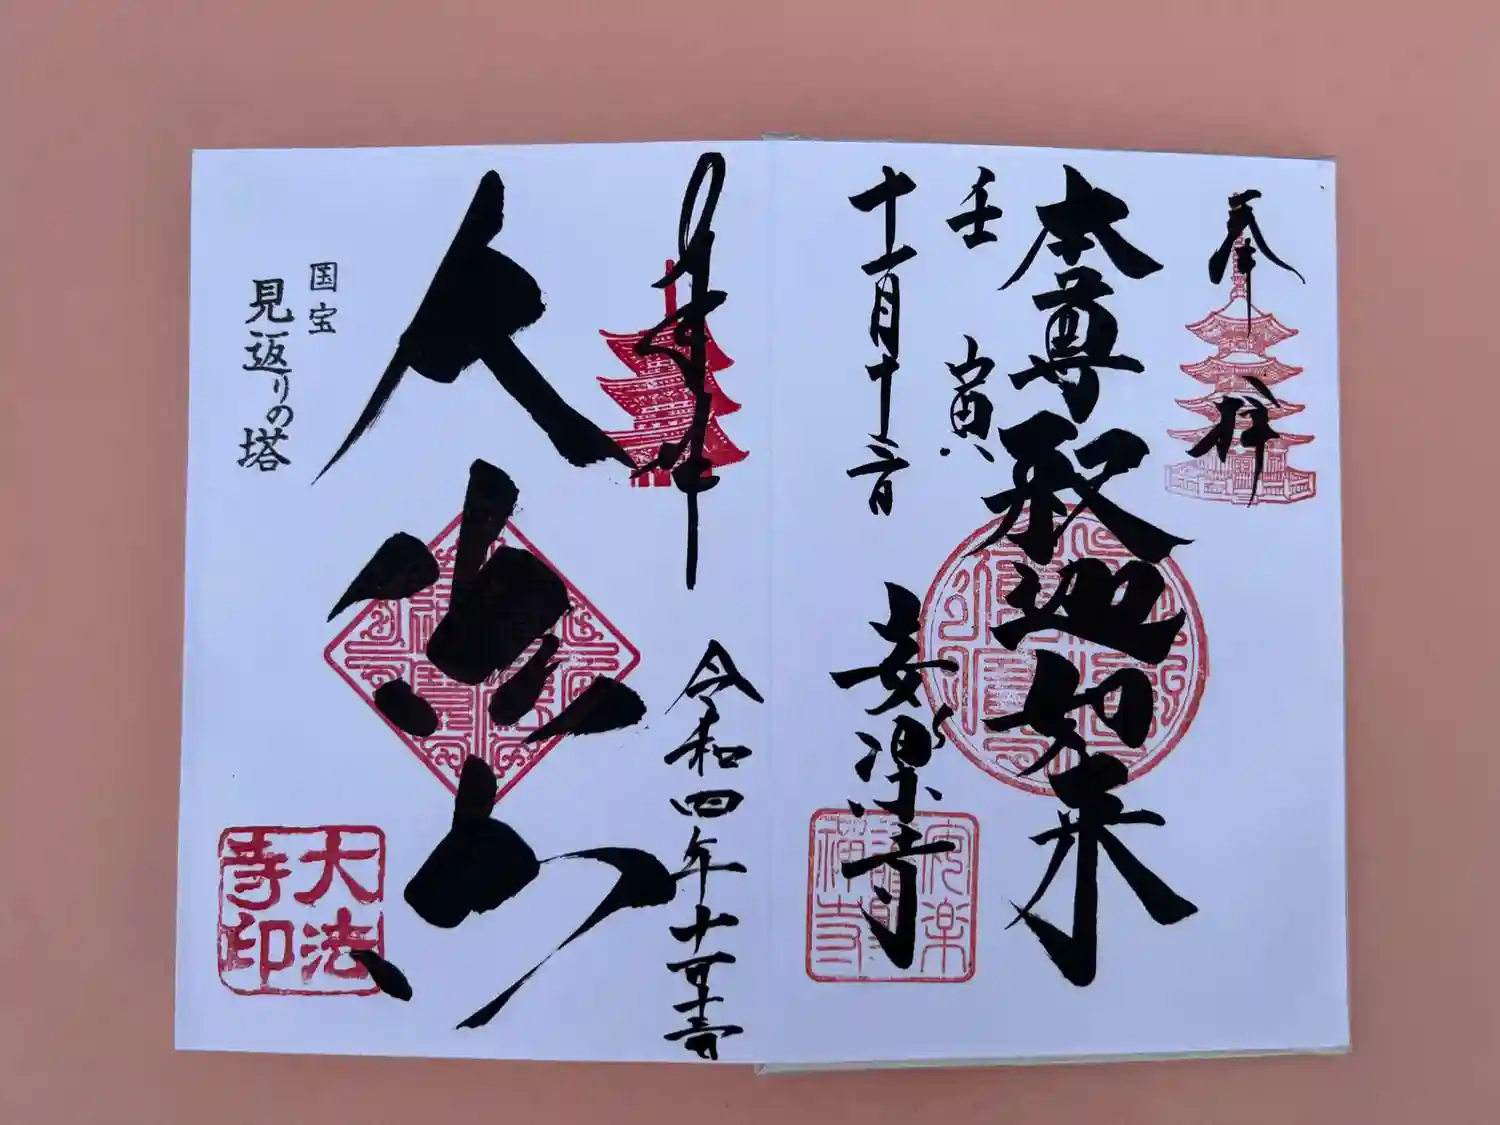 奉拝
本尊釈迦如来
壬寅
十一月十
安楽寺
奉拝
令和四年十一月十
大法寺
国宝
見返りの塔
大法
寺印